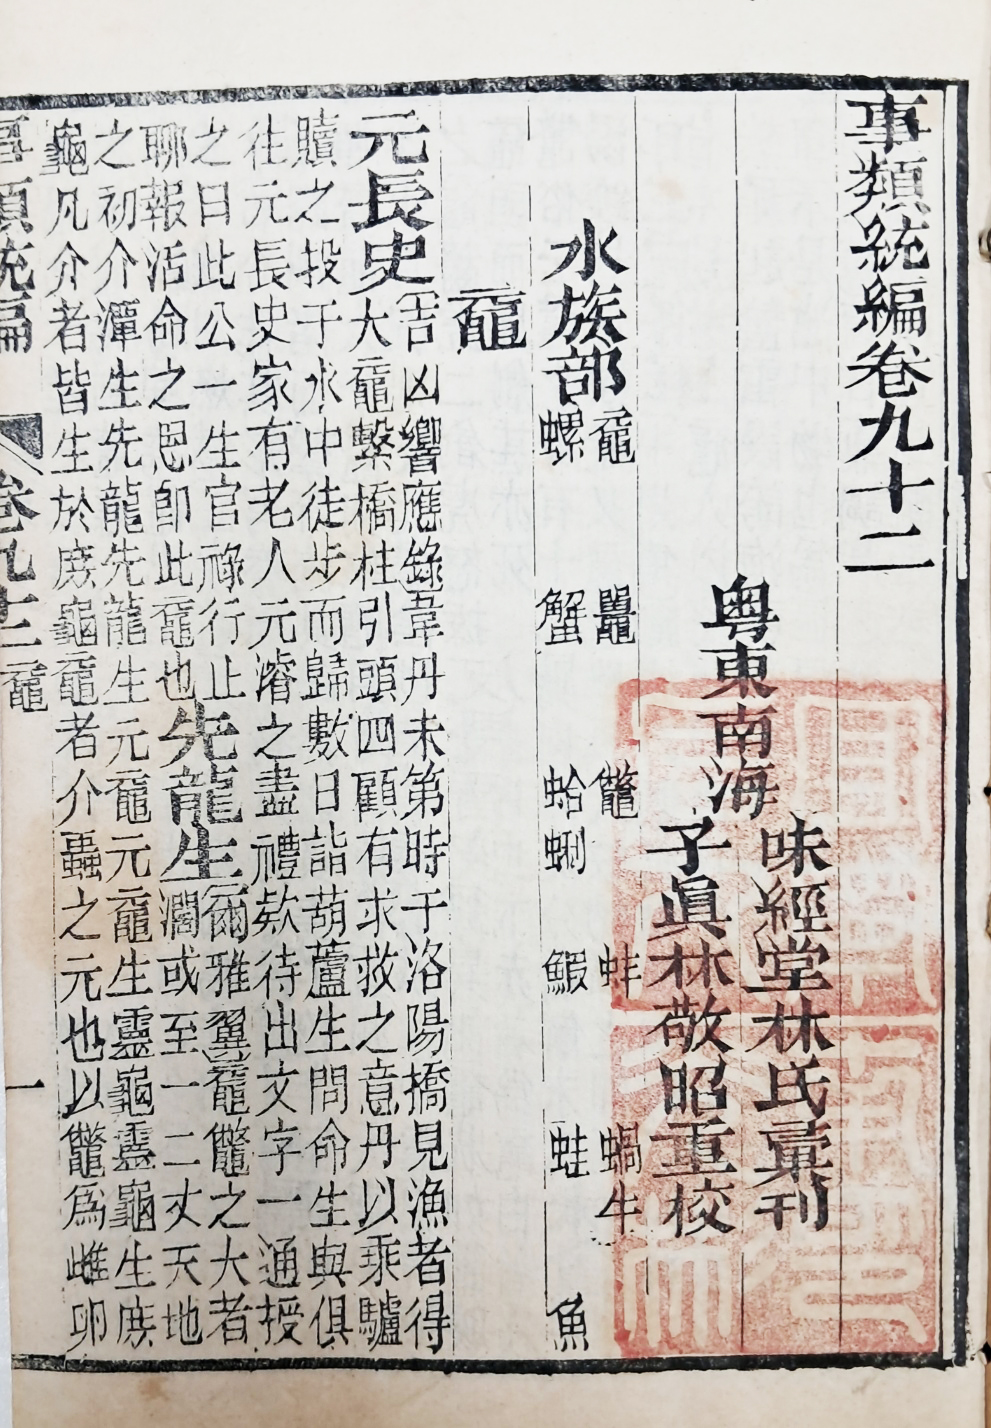 事類統編卷九十二
粵東南海
味經堂林氏彙刊
子眞林敬昭重校
水族部
黿
鼉
鼈
蚌
蝸牛
螺
蟹
蛤蜊
鰕
蛙
魚
黿
元長史
吉凶響應錄韋丹未第時于洛陽橋見漁者得
大黿繫橋柱引頭四顧有求救之意丹以乘驢
贖之投于水中徒步而歸數日詣葫蘆生問命生與俱
往元長史家有老人元濬之盡禮欵待出文字一通授
之曰此公一生官祿行止
聊報活命之恩卽此黿也
先龍生
爾雅翼黿鼈之大者
濶或至一二丈天地
之初介潭生先龍先龍生元黿元黿生靈龜靈龜生庶
龜凡介者皆生於庶龜黿者介蟲之元也以鼈爲雌卵
事類統編
卷九十二
黿
一